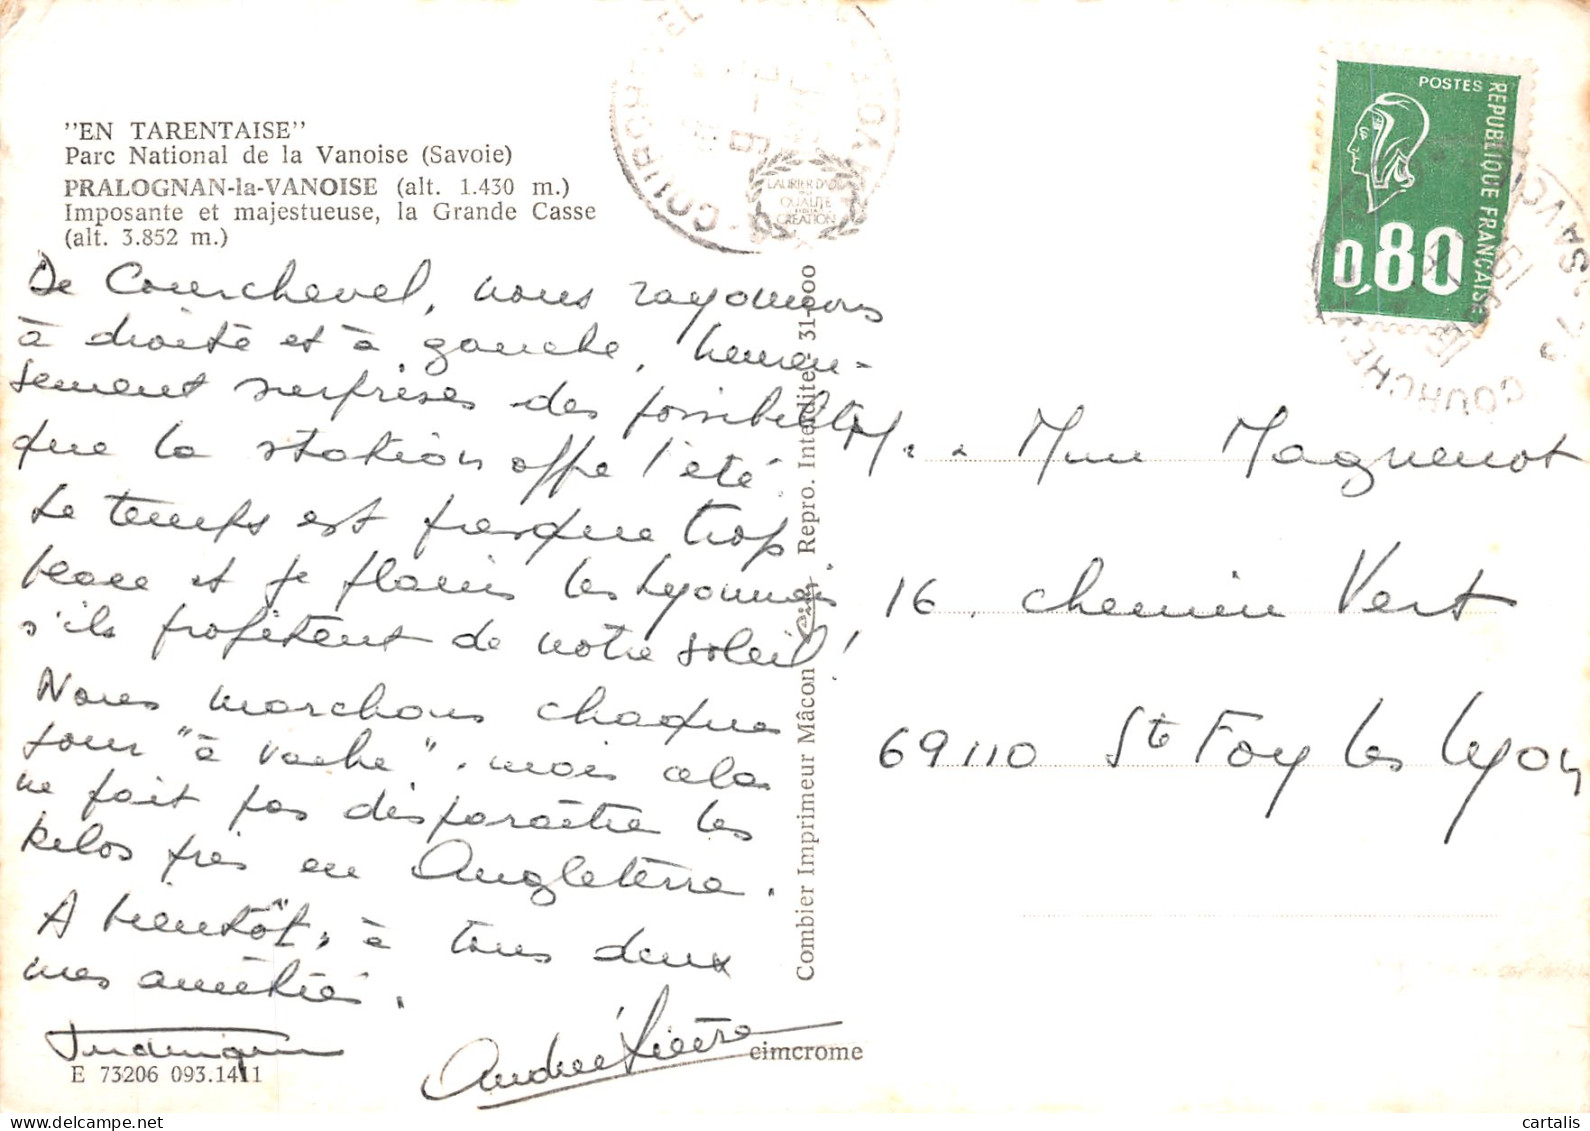 "EN TARENTAISE"
Parc National de la Vanoise (Savoie)
PRALOGNAN-la-VANOISE (alt. 1.430 m.)
Imposante et majestueuse, la Grande Casse
(alt. 3.852 m.)
De Courchevel, nous rayonnons
à droite et à gauche, heureu-
sement surprises des possibilités
que la station offre l'été.
Le temps est presque trop
beau et je plains les Lyonnais
s'ils profitent de notre soleil!
Nous marchons chaque
jour "à vache", mais cela
ne fait pas disparaître les
kilos pris en Angleterre.
A bientôt, à tous deux
mes amitiés.
E 73206 093.1411
cimcrome
Combier Imprimeur Mâcon
Repro. Interdite 31-00
LAURIER D'OR
QUALITÉ
CRÉATION
POSTES
REPUBLIQUE FRANÇAISE
0,80
M. Mme Maguenot
16, chemin Vert
69110 Ste Foy les Lyon